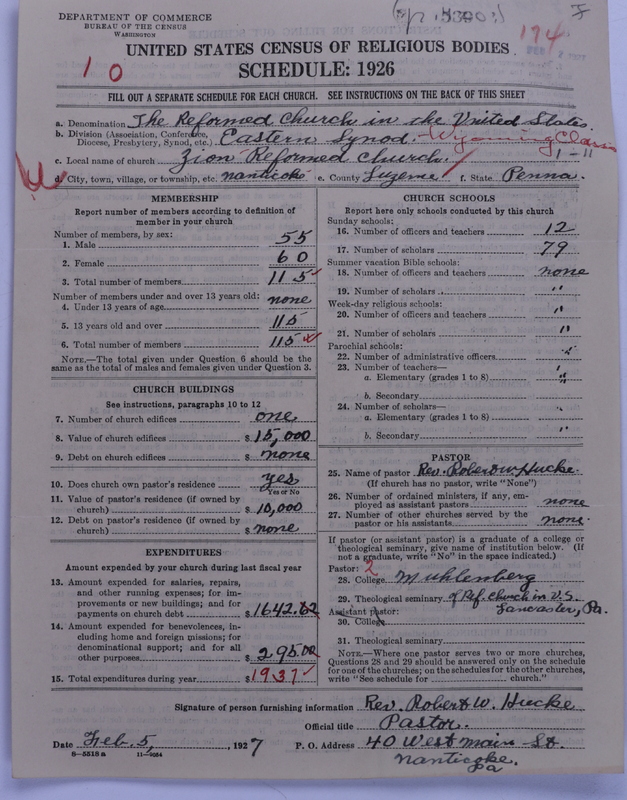 DEPARTMENT OF COMMERCE
BUREAU OF THE CENSUS
WASHINGTON
174
FEB
10
UNITED STATES CENSUS OF RELIGIOUS BODIES
SCHEDULE: 1926
FILL OUT A SEPARATE SCHEDULE FOR EACH CHURCH. SEE INSTRUCTIONS ON THE BACK OF THIS SHEET
a. Denomination The Reformed Church in the United States.
b. Division (Association, Conference, Diocese, Presbytery, Synod, etc.) Eastern Synod. Wyoming Classis
1-11
c. Local name of church Zion Reformed Church.
d. City, town, village, or township, etc. Nanticoke e. County Luzerne f. State Penna.
MEMBERSHIP
Report number of members according to definition of
member in your church
Number of members, by sex:
1. Male 55
2. Female 60
3. Total number of members 115
Number of members under and over 13 years old:
4. Under 13 years of age none
5. 13 years old and over 115
6. Total number of members 115
NOTE.—The total given under Question 6 should be the
same as the total of males and females given under Question 3.
CHURCH BUILDINGS
See instructions, paragraphs 10 to 12
7. Number of church edifices one
8. Value of church edifices $ 15,000
9. Debt on church edifices $ none
10. Does church own pastor's residence yes
Yes or No
11. Value of pastor's residence (if owned by
church) $ 10,000
12. Debt on pastor's residence (if owned by
church) $ none
EXPENDITURES
Amount expended by your church during last fiscal year
13. Amount expended for salaries, repairs,
and other running expenses; for im-
provements or new buildings; and for
payments on church debt $ 1642.62
14. Amount expended for benevolences, in-
cluding home and foreign missions; for
denominational support; and for all
other purposes $ 295.00
15. Total expenditures during year $ 1937
CHURCH SCHOOLS
Report here only schools conducted by this church
Sunday schools:
16. Number of officers and teachers 12
17. Number of scholars 79
Summer vacation Bible schools:
18. Number of officers and teachers none
19. Number of scholars "
Week-day religious schools:
20. Number of officers and teachers "
21. Number of scholars "
Parochial schools:
22. Number of administrative officers "
23. Number of teachers—
a. Elementary (grades 1 to 8) "
b. Secondary
24. Number of scholars—
a. Elementary (grades 1 to 8) "
b. Secondary "
PASTOR
25. Name of pastor Rev. Robert W. Hucke.
(If church has no pastor, write "None")
26. Number of ordained ministers, if any, em-
ployed as assistant pastors none
27. Number of other churches served by the
pastor or his assistants none.
If pastor (or assistant pastor) is a graduate of a college or
theological seminary, give name of institution below. (If
not a graduate, write "No" in the space indicated.)
Pastor: 2
28. College Muhlenberg
29. Theological seminary of Ref. Church in U.S.
Lancaster, Pa.
Assistant pastor:
30. College
31. Theological seminary
NOTE.—Where one pastor serves two or more churches,
Questions 28 and 29 should be answered only on the schedule
for one of the churches; on the schedules for the other churches,
write "See schedule for church."
Signature of person furnishing information Rev. Robert W. Hucke
Official title Pastor.
Date Feb. 5, 1927 P. O. Address 40 West Main St.
Nanticoke, Pa
8—5518 a 11—9054